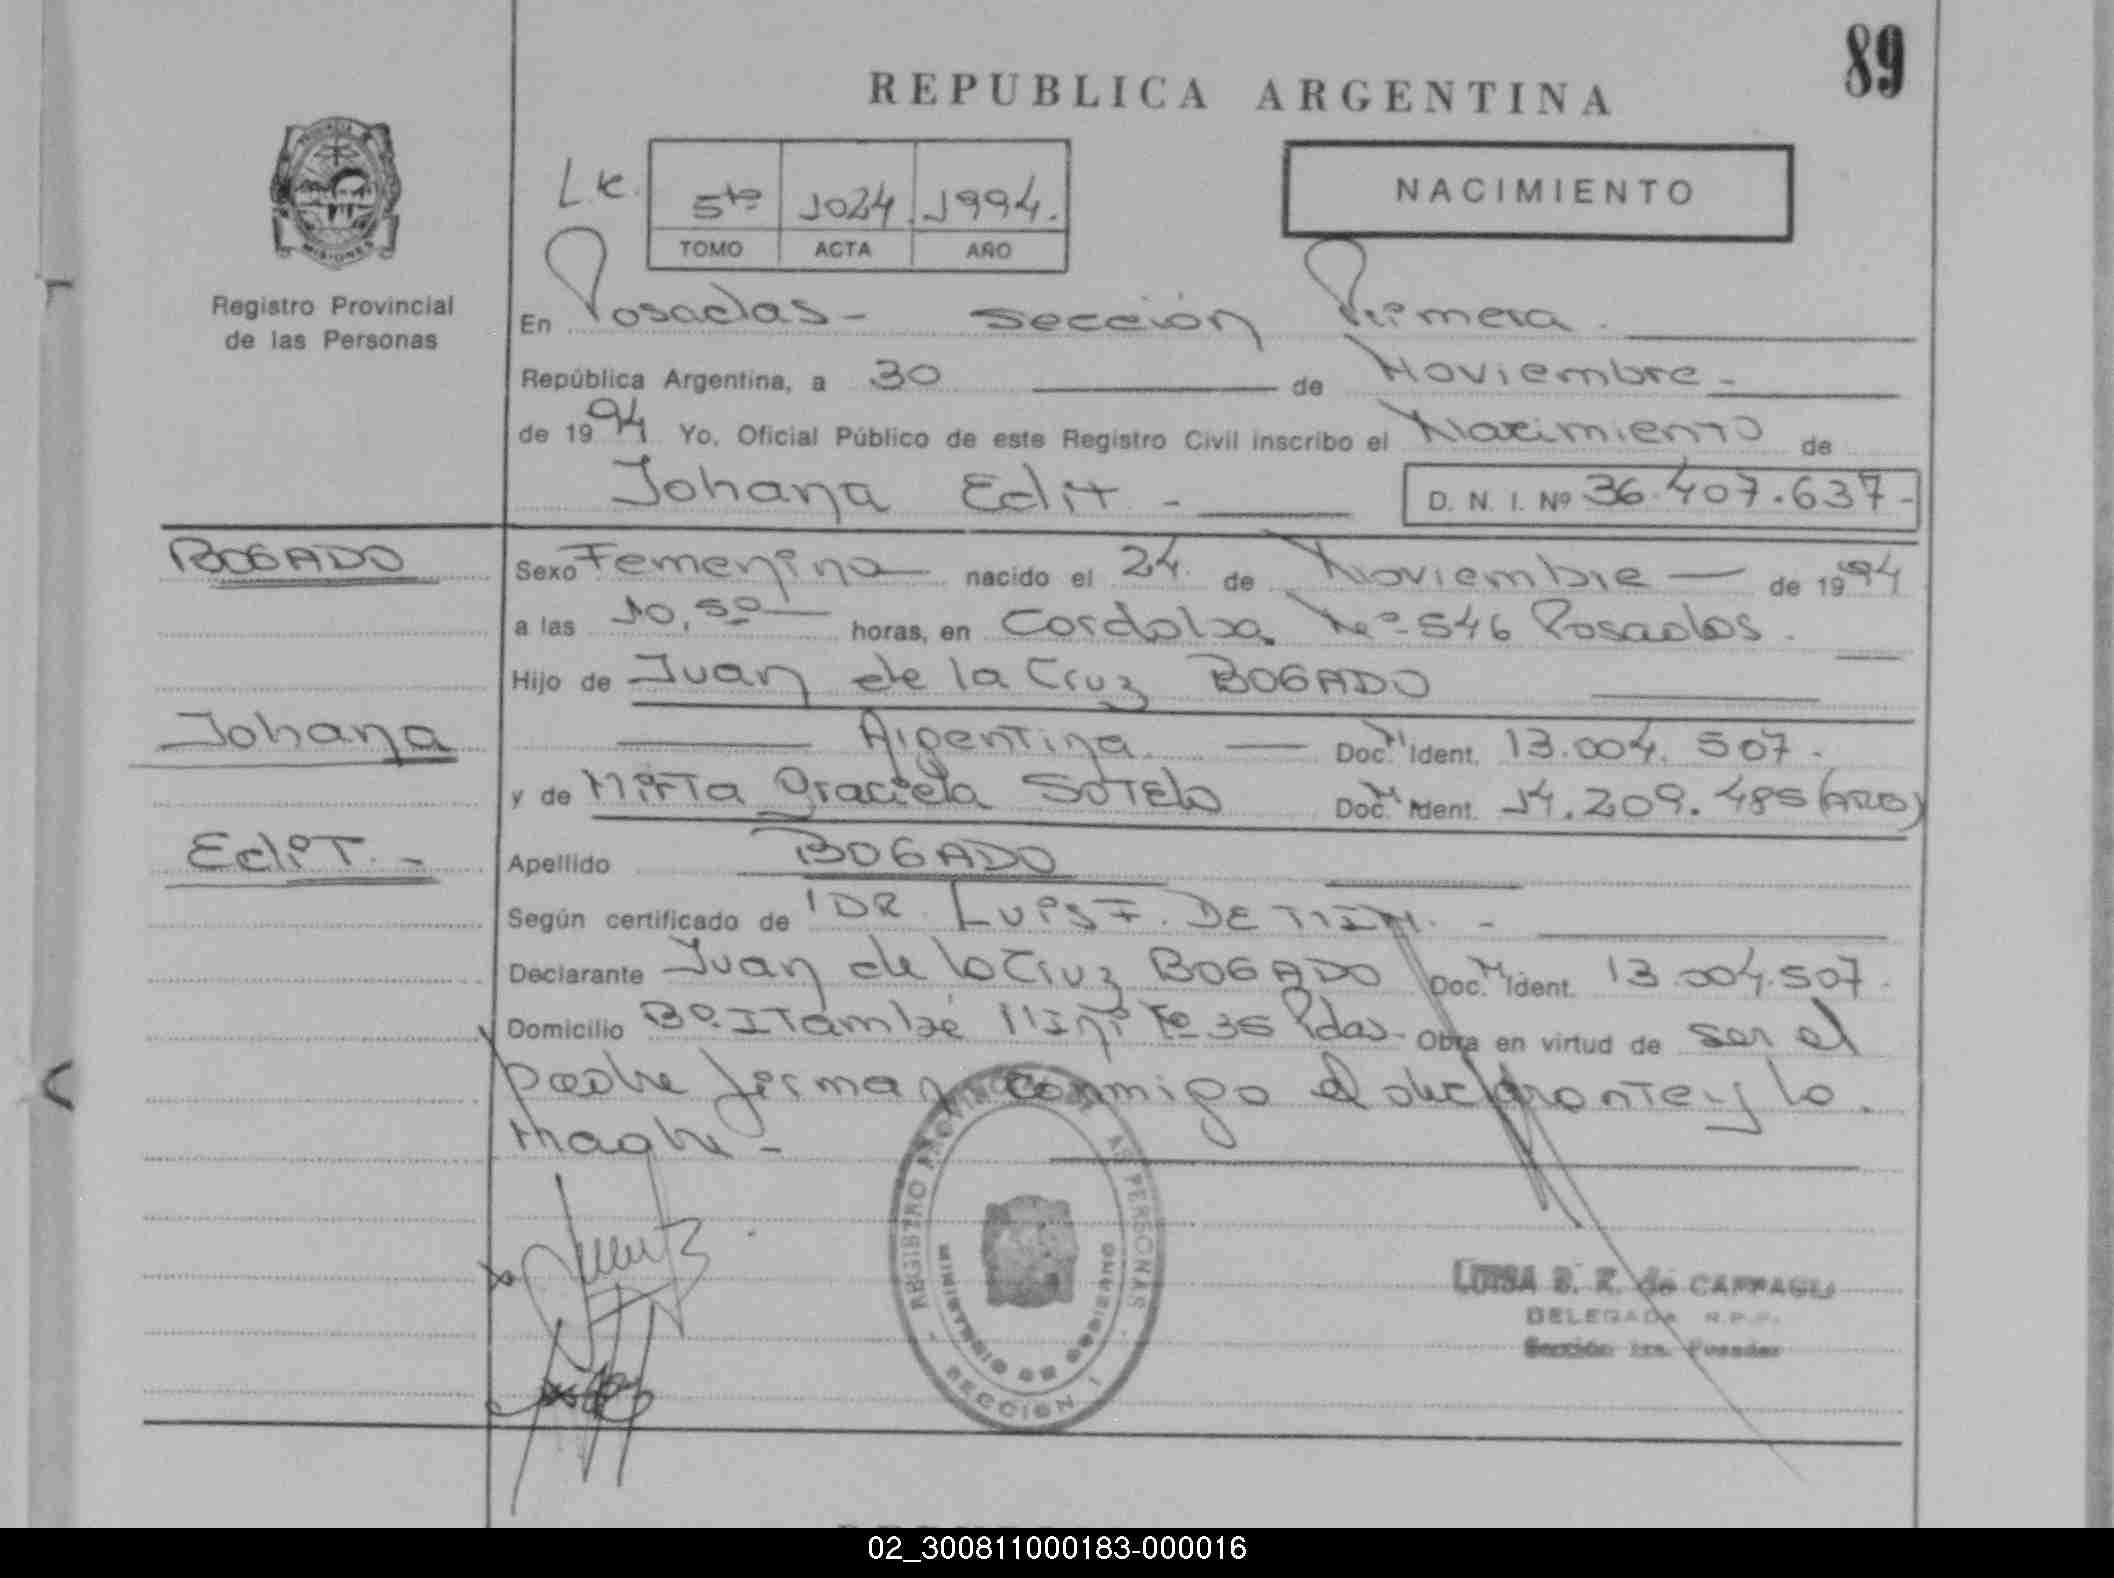 89
REPUBLICA ARGENTINA
5to 1024 1994.
TOMO ACTA AÑO
NACIMIENTO
PROVINCIA DE
MISIONES
Registro Provincial
de las Personas
En Posadas - Sección Primera.
República Argentina, a 30 de Noviembre -
de 1994 Yo, Oficial Público de este Registro Civil inscribo el Nacimiento de
Johana Edit - D. N. I. Nº 36.407.637-
BOGADO
Johana
Edit. -
Sexo Femenino nacido el 24 de Noviembre de 1994
a las 10,50 horas, en Cordoba Nº 546 Posadas.
Hijo de Juan de la Cruz BOGADO
Argentina Doc. Ident. 13.004.507.
y de Mirta Graciela Sotelo Doc. Ident. 14.209.485 (ARG)
Apellido BOGADO
Según certificado de DR. Luis F. -
Declarante Juan de la Cruz BOGADO Doc. Ident. 13.004.507.
Domicilio Bº Itambé Miní 35 Pdas. Obra en virtud de ser el
padre firman conmigo el declarante y la
madre -
REGISTRO PROVINCIAL DE LAS PERSONAS
MINISTERIO DE GOBIERNO
SECCION 1
LUISA de
DELEGADA R.P.P.
Sección 1ra. Posadas
02_300811000183-000016